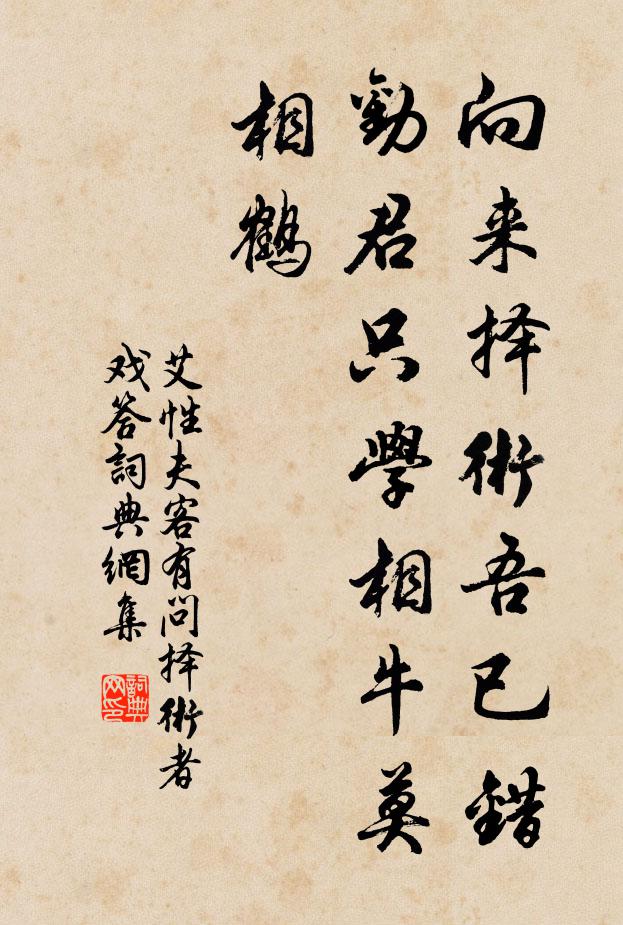 向来择術吾已錯
勸君只學相牛莫
相鶴
艾性夫客有问择術者
戏答詞典網集
詞典网印